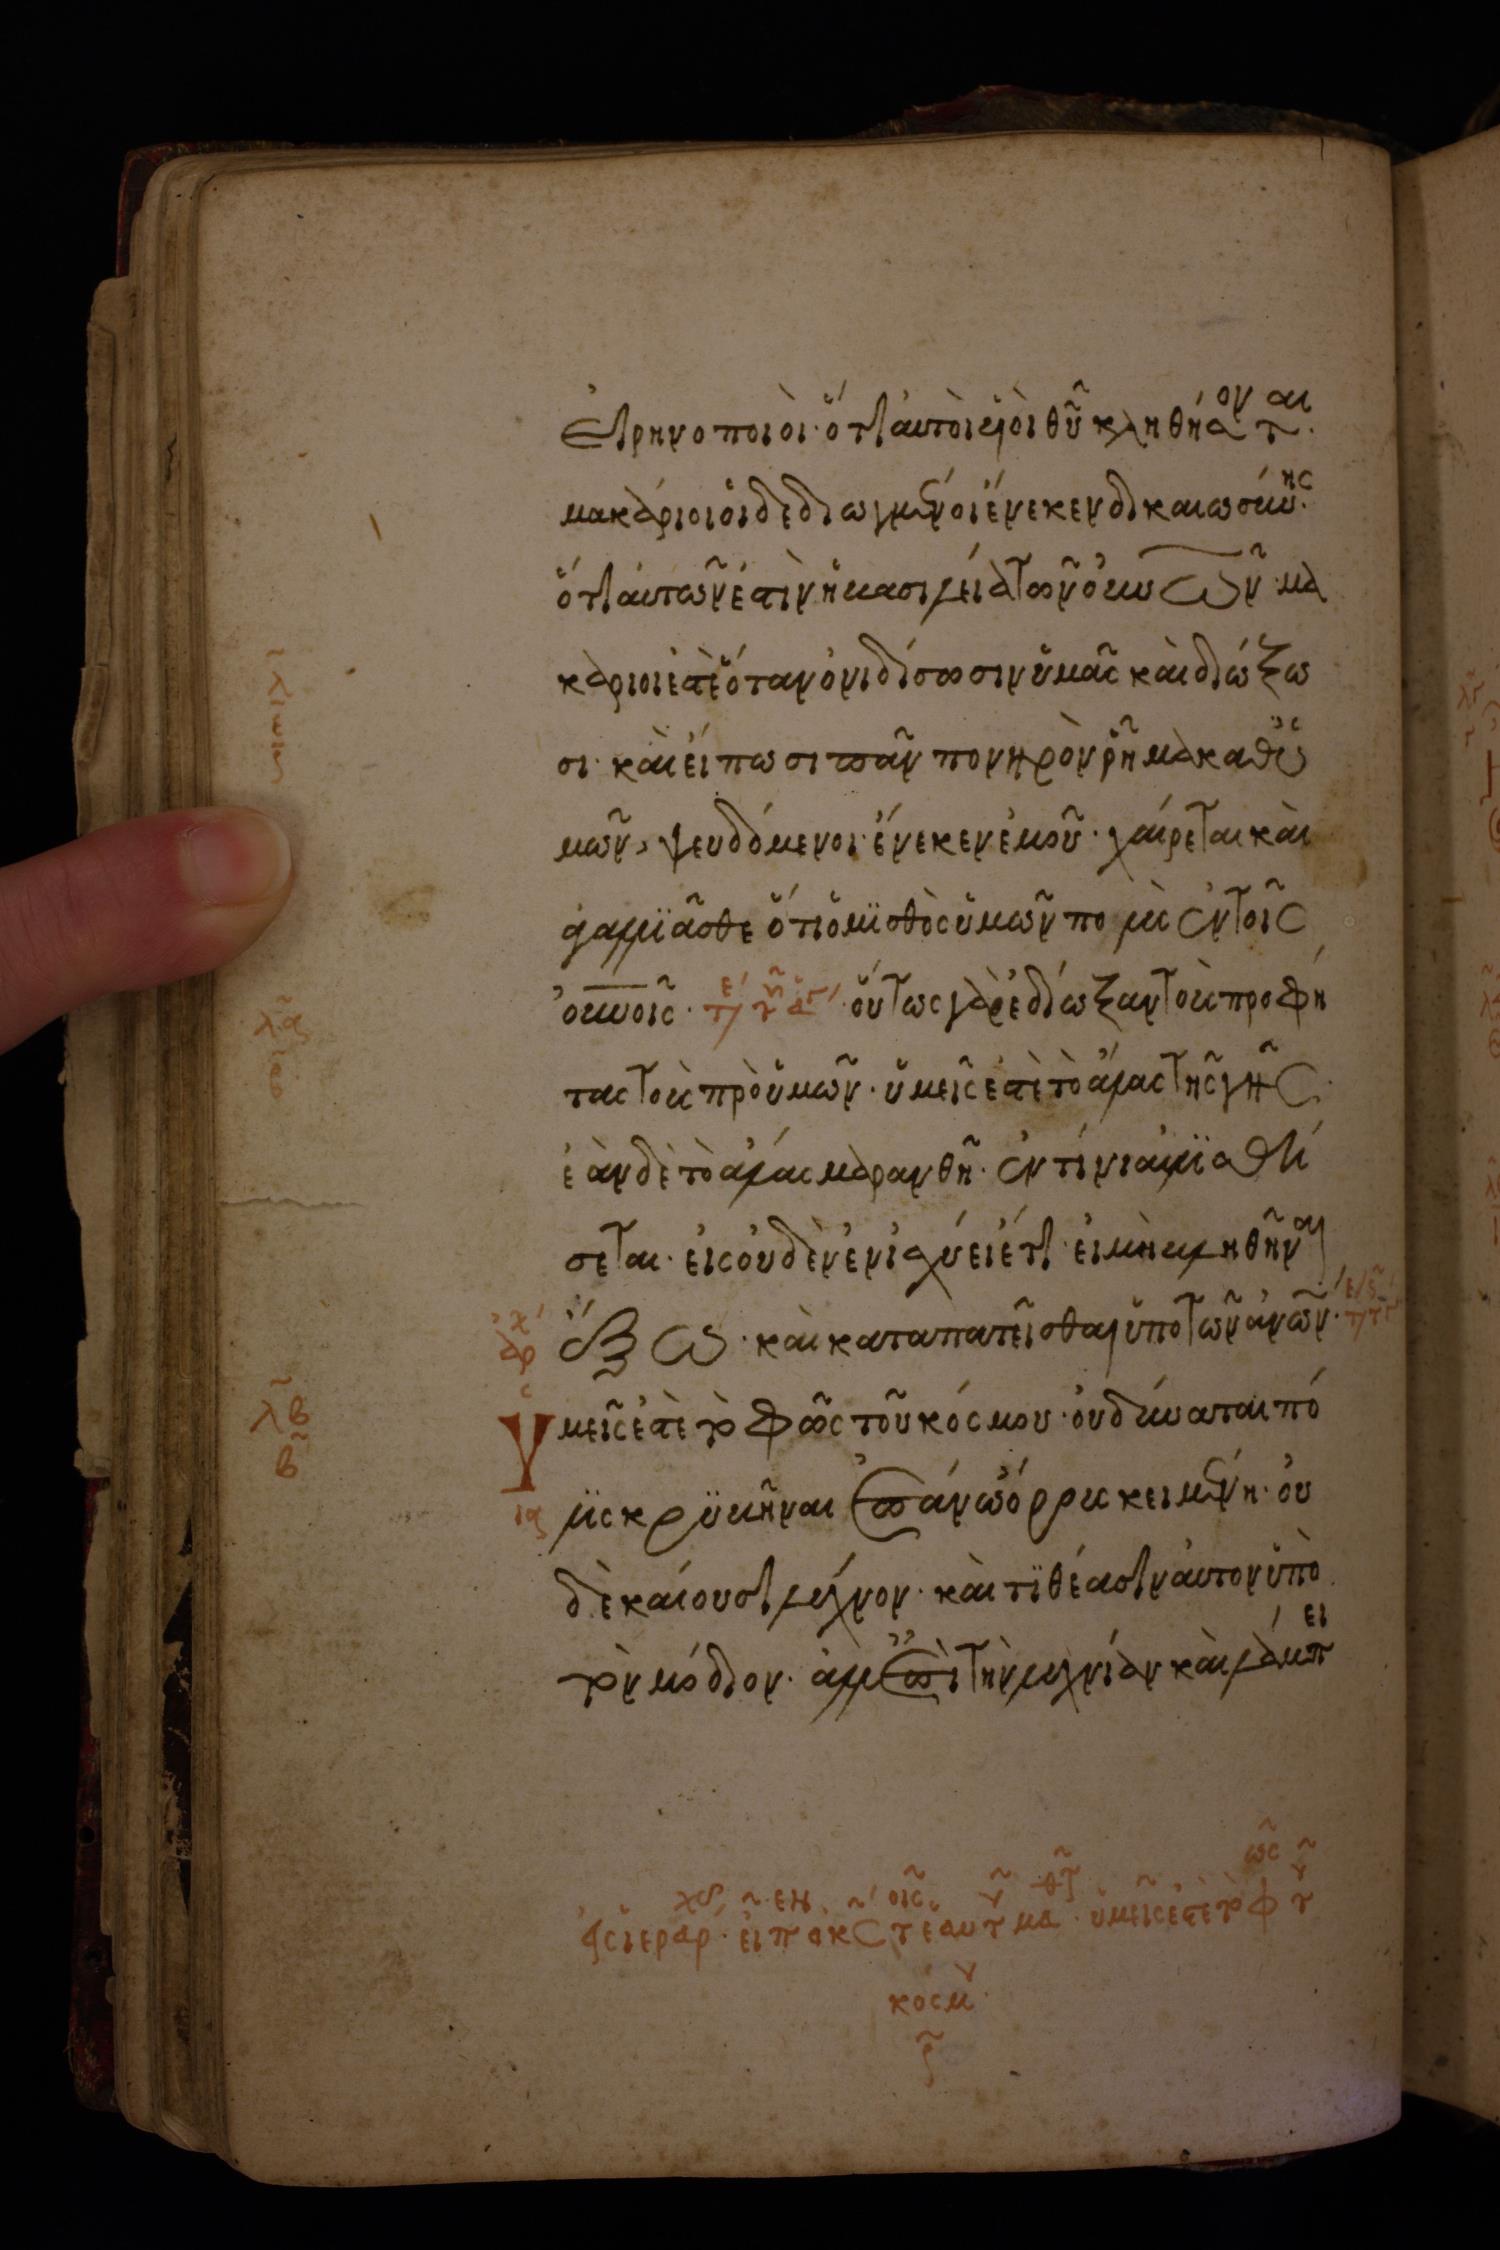 εἰρηνοποιοὶ· ὅτι αὐτοὶ υἱοὶ θῦ κληθήσονται·
μακάριοι οἱ δεδιωγμένοι ἕνεκεν δικαιωσύνης·
ὅτι αὐτῶν ἐστὶν ἡ βασιλεία τῶν οὐνῶν· μα
κάριοι ἐστὲ ὅταν ὀνιδίσωσιν ὑμᾶς καὶ διώξω
σι· καὶ εἴπωσι πᾶν πονηρὸν ῥῆμα καθ' ὑ
μῶν, ψευδόμενοι· ἕνεκεν ἐμοῦ· χαίρεται καὶ
ἀγαλλϊᾶσθε ὅτι ὁ μϊσθὸς ὑμῶν πολὺς ἐν τοῖς
οὐνοῖς· οὕτως γὰρ ἐδίωξαν τοὺς προφή
τας τοὺς πρὸ ὑμῶν· ὑμεῖς ἐστὲ τὸ ἅλας τῆς γῆς·
ἐὰν δὲ τὸ ἅλας μαρανθῆ· ἐν τίνι ἁλϊσθή
σεται· εἰς οὐδὲν ἐνισχύει ἔτι· εἰ μὴ βληθῆναι
ἔξω· καὶ καταπατεῖσθαι ὑπὸ τῶν ἀνῶν·
Ὑμεῖς ἐστὲ τὸ φῶς τοῦ κόσμου· οὐ δύναται πό
λϊς κρϋβῆναι ἐπάνω ὄρους κειμένη· οὐ
δὲ καίουσι λύχνον· καὶ τϊθέασιν αὐτὸν ὑπὸ
τὸν μόδιον· ἀλλ' ἐπὶ τὴν λυχνίαν καὶ λάμπει
λβ
β
ὑμεῖς ἐστὲ τὸ φῶς τοῦ
κόσμου·